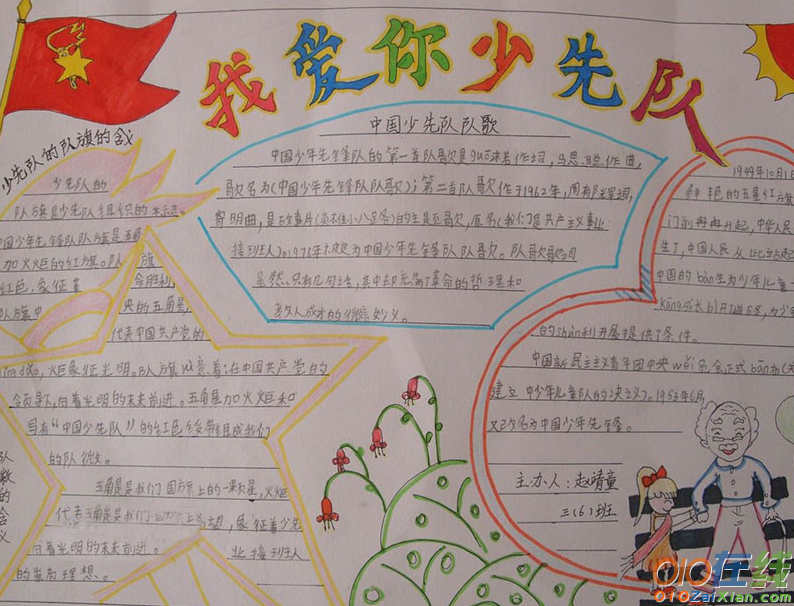 我爱你少先队
少先队的队旗的含义
少先队的
队旗是少先队组织的标志。
中国少年先锋队队旗是五角
加火炬的红旗。
红色,象征革命胜利,
队旗中央的五角星,
代表中国共产党的
领导,火炬象征光明。队旗意味着:在中国共产党的
领导下,向着光明的未来前进。五角星加火火炬和
写有“中国少先队”的红色绶带组成我们
的队徽。
五角星是我们国旗上的一颗星,火炬
代表
象征着少先
向着光明的未来前进。
业接班人
的崇高理想。
中国少先队队歌
中国少年先锋队的第一首队歌是guō沫若作词,马思聪作曲,
歌名为《中国少年先锋队队歌》;第二首队歌作于1962年,周郁辉词,
寄明曲,是故事片《英雄小八路》的主题歌,原名《我们是共产主义事业
接班人》1978年被定为中国少年先锋队队歌。队歌歌词
虽然只有几句话,其中却充满了革命的哲理和
教人成才的微言妙义。
1949年10月1
鲜艳的五星红旗
门前冉冉升起,中华人民
生了,中国人民从此
中国的bān生为少年儿童
kāng成长bì开了道路,为少
的shùn利开展提供了条件。
中国新民主主义青年团中央wěi员会正式bān为《关
建立中少年儿童队的决议》。1953年6月,
又改名为中国少年先锋。
主办人:赵靖童
三(6)班
010在线
010ZaiXian.com